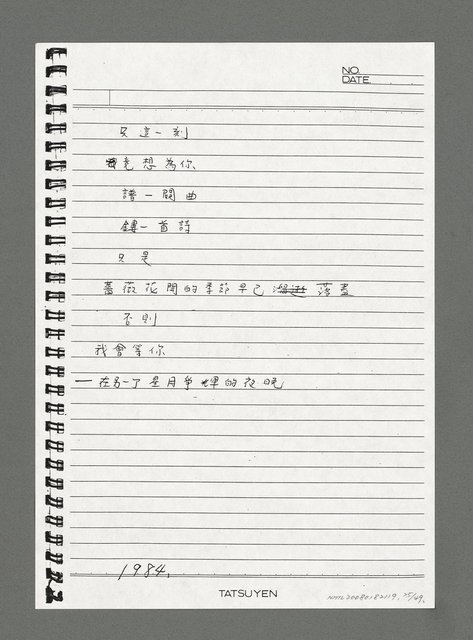 NO.
DATE
只這一刻
竟想為你
譜一闋曲
鏤一首詩
只是
薔薇花開的季節早已 落盡
否則
我會等你
—在另一了星月爭輝的夜晚
1984.
TATSUYEN
NMTL20080182119, 25/49.